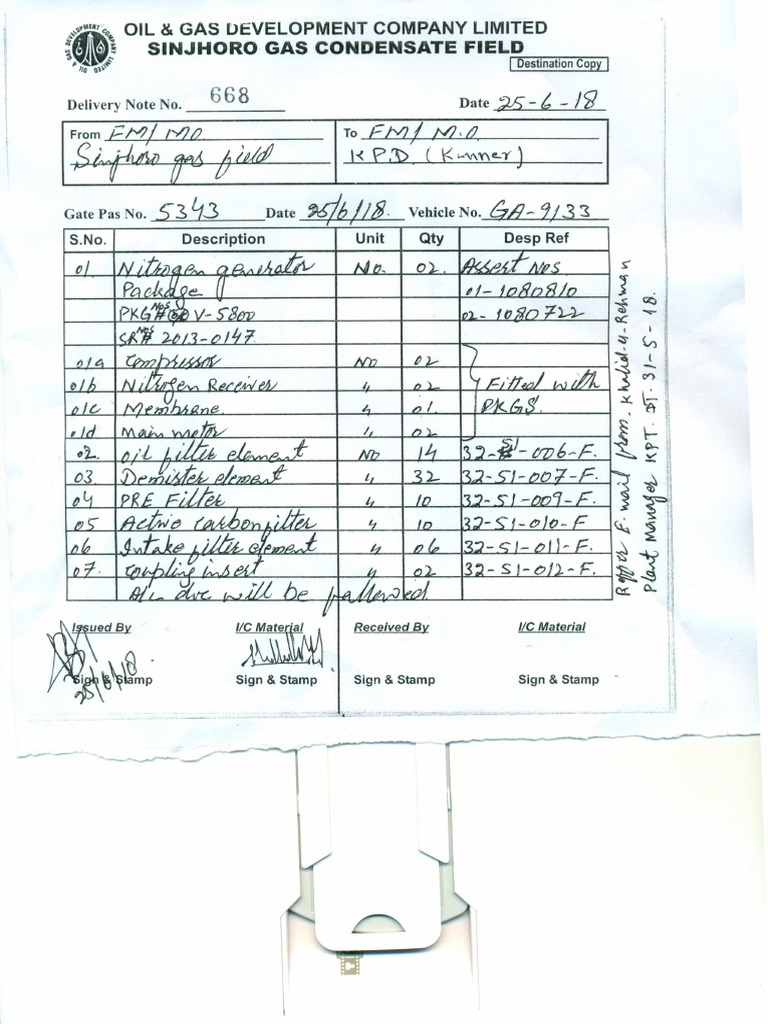 OIL & GAS DEVELOPMENT COMPANY LIMITED
SINJHORO GAS CONDENSATE FIELD
OIL & GAS DEVELOPMENT COMPANY LIMITED
Destination Copy
Delivery Note No. 668 Date 25-6-18
From FM/M.O. To FM/M.O
Sinjhoro gas field K.P.D (Kunner)
Gate Pas No. 5343 Date 25/6/18. Vehicle No. GA-9133
S.No. Description Unit Qty Desp Ref
01 Nitrogen generator No. 02. Assert Nos
Package 01-1080810
PKG# Nos V-5800 02-1080722
SR# Nos 2013-0147.
01a Compressor NO 02 Fitted with PKGS.
01b Nitrogen Receiver " 02
01c Membrane " 01.
01d Main motor " 02
02. oil filter element NO 14 32-51-006-F.
03. Demister element " 32 32-51-007-F.
04 PRE Filter " 10 32-51-009-F.
05 Active carbon filter " 10 32-51-010-F
06 Intake filter element " 06 32-51-011-F.
07. coupling insert " 02 32-51-012-F.
will be
E.mail from Khalid-u-Rehman
Plant Manager KPT. DT. 31-5-18.
Issued By I/C Material Received By I/C Material
25/6/18
Sign & Stamp Sign & Stamp Sign & Stamp Sign & Stamp